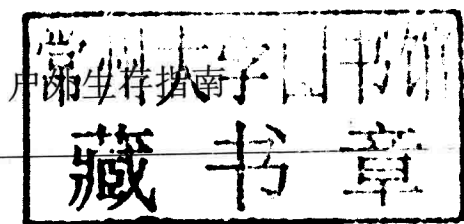 常州大学图书馆
户外生存指南
藏书章